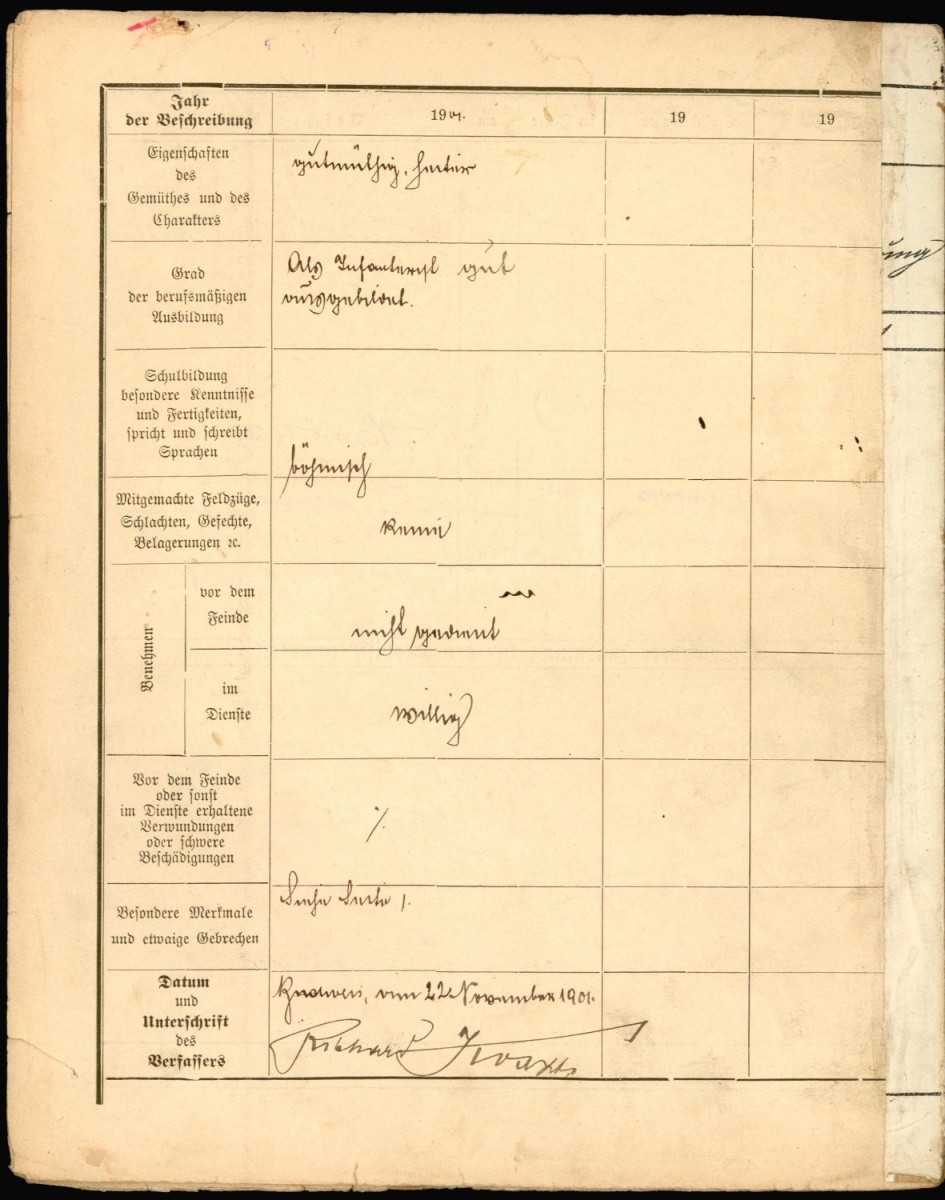 Jahr
der Beschreibung
1901.
19
19
Eigenschaften
des
Gemüthes und des
Charakters
gutmüthig, heiter
Grad
der berufsmäßigen
Ausbildung
Als Infanterist gut
ausgebildet.
Schulbildung
besondere Kenntnisse
und Fertigkeiten,
spricht und schreibt
Sprachen
böhmisch
Mitgemachte Feldzüge,
Schlachten, Gefechte,
Belagerungen ꝛc.
Keine
Benehmen
vor dem
Feinde
nicht gedient
im
Dienste
willig
Vor dem Feinde
oder sonst
im Dienste erhaltene
Verwundungen
oder schwere
Beschädigungen
/.
Besondere Merkmale
und etwaige Gebrechen
Siehe Seite 1.
Datum
und
Unterschrift
des
Verfassers
Budweis, am 22 November 1901.
Richard